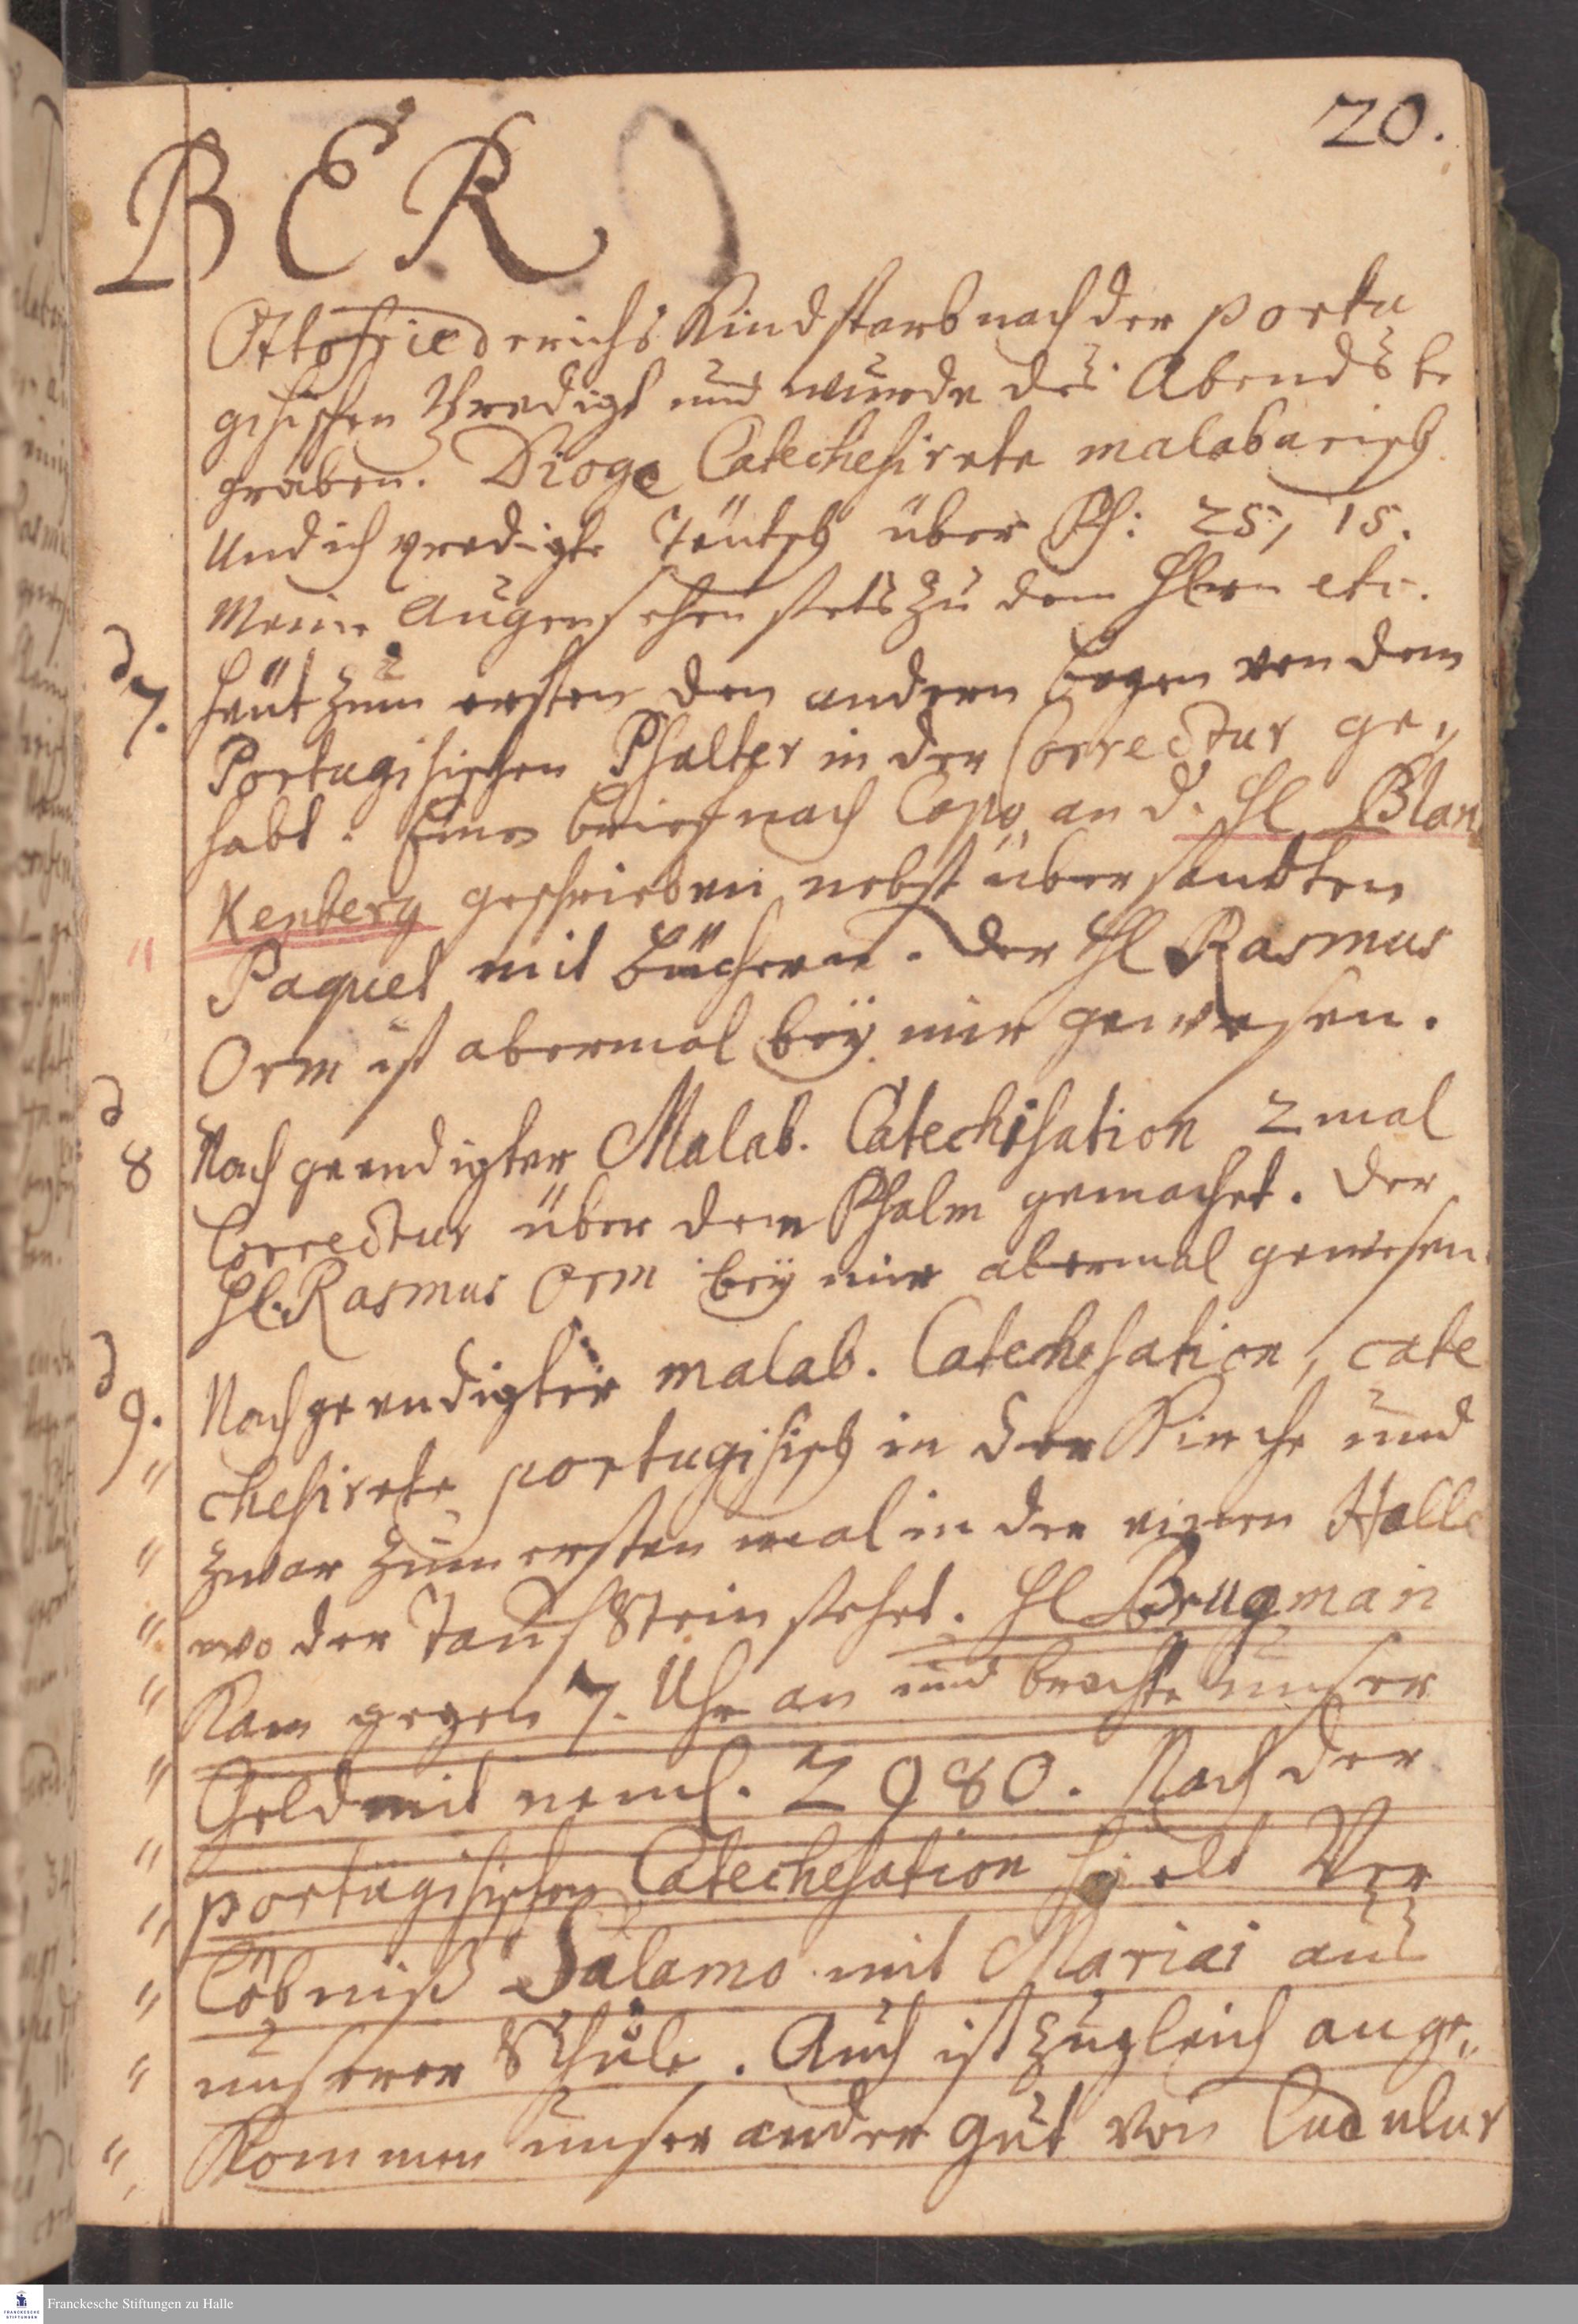 20.
BER
Ottofriederichs Kind starb nach der portu
gisischen Predigt und wurde des Abends be
graben. Diogo Catechesirete malabarisch
Und ich predigte Teütsch über Ps: 25, 15.
Meine Augen sehen stets zu dem Hern etc.
d 7. heüt zum ersten den andern bogen von dem
Portugisischen Psalter in der Correctur ge„
habt. Einen brieff nach Capo an d. Hl Blan
Kenberg geschrieben nebst übersandten
" Paquet mit Büchern. der Hl Rasmus
Orm ist abermal beÿ mir gewesen.
d 8 Nach geendigter Malab. Catechisation 2 mal
Correctur über dem Psalm gemachet. der
Hl. Rasmus Orm beÿ mir abermal gewesen.
d 9. Nach geendigter malab. Catechesation, cate
" chesirete portugisisch in der Kirche und
" zwar zum ersten mal in der einen Halle
" wo der Tauff Stein stehet. Hl Brugman
" Kam gegen 7. Uhr an und brachte unser
" Geld mit neml. 2980. Nach der
" portugisischen Catechesation hielt Ver
" Löbniß Salamo mit Mariai aus
" unserer Schule. Auch ist zugleich ange„
" Kommen unser ander gut von Cudulur
"
Franckesche Stiftungen zu Halle
FRANCKESCHE
STIFTUNGEN